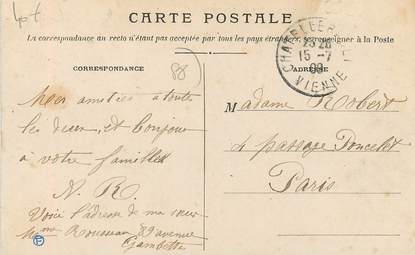 CARTE POSTALE
La correspondance au recto n'étant pas acceptée par tous les pays étrangers, se renseigner à la Poste
CORRESPONDANCE
ADRESSE
88
15 -7
VIENNE
amitiés à toute
les deux, et bonjour
à votre famille
N. R.
Voici l'adresse de ma sœur
Mme Rousseau 89 avenue
Gambetta
Madame Robert
4 passage Poncelet
Paris